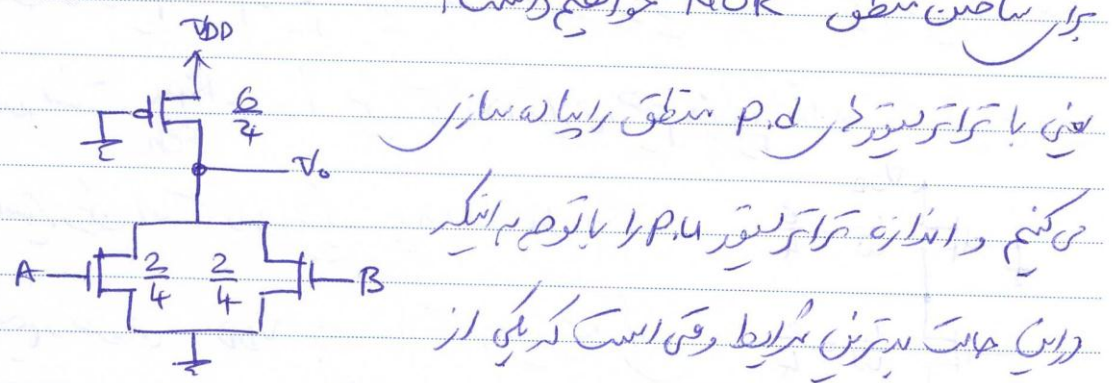 برای ساختن منطق NOR خواهیم داشت:
VDD
6/4
یعنی با ترانزیستورهای p.d منطق را پیاده سازی
Vo
می‌کنیم و اندازه ترانزیستور p.u را با توجه به اینکه
A 2/4 2/4 B
در این حالت بدترین شرایط وقتی است که یکی از